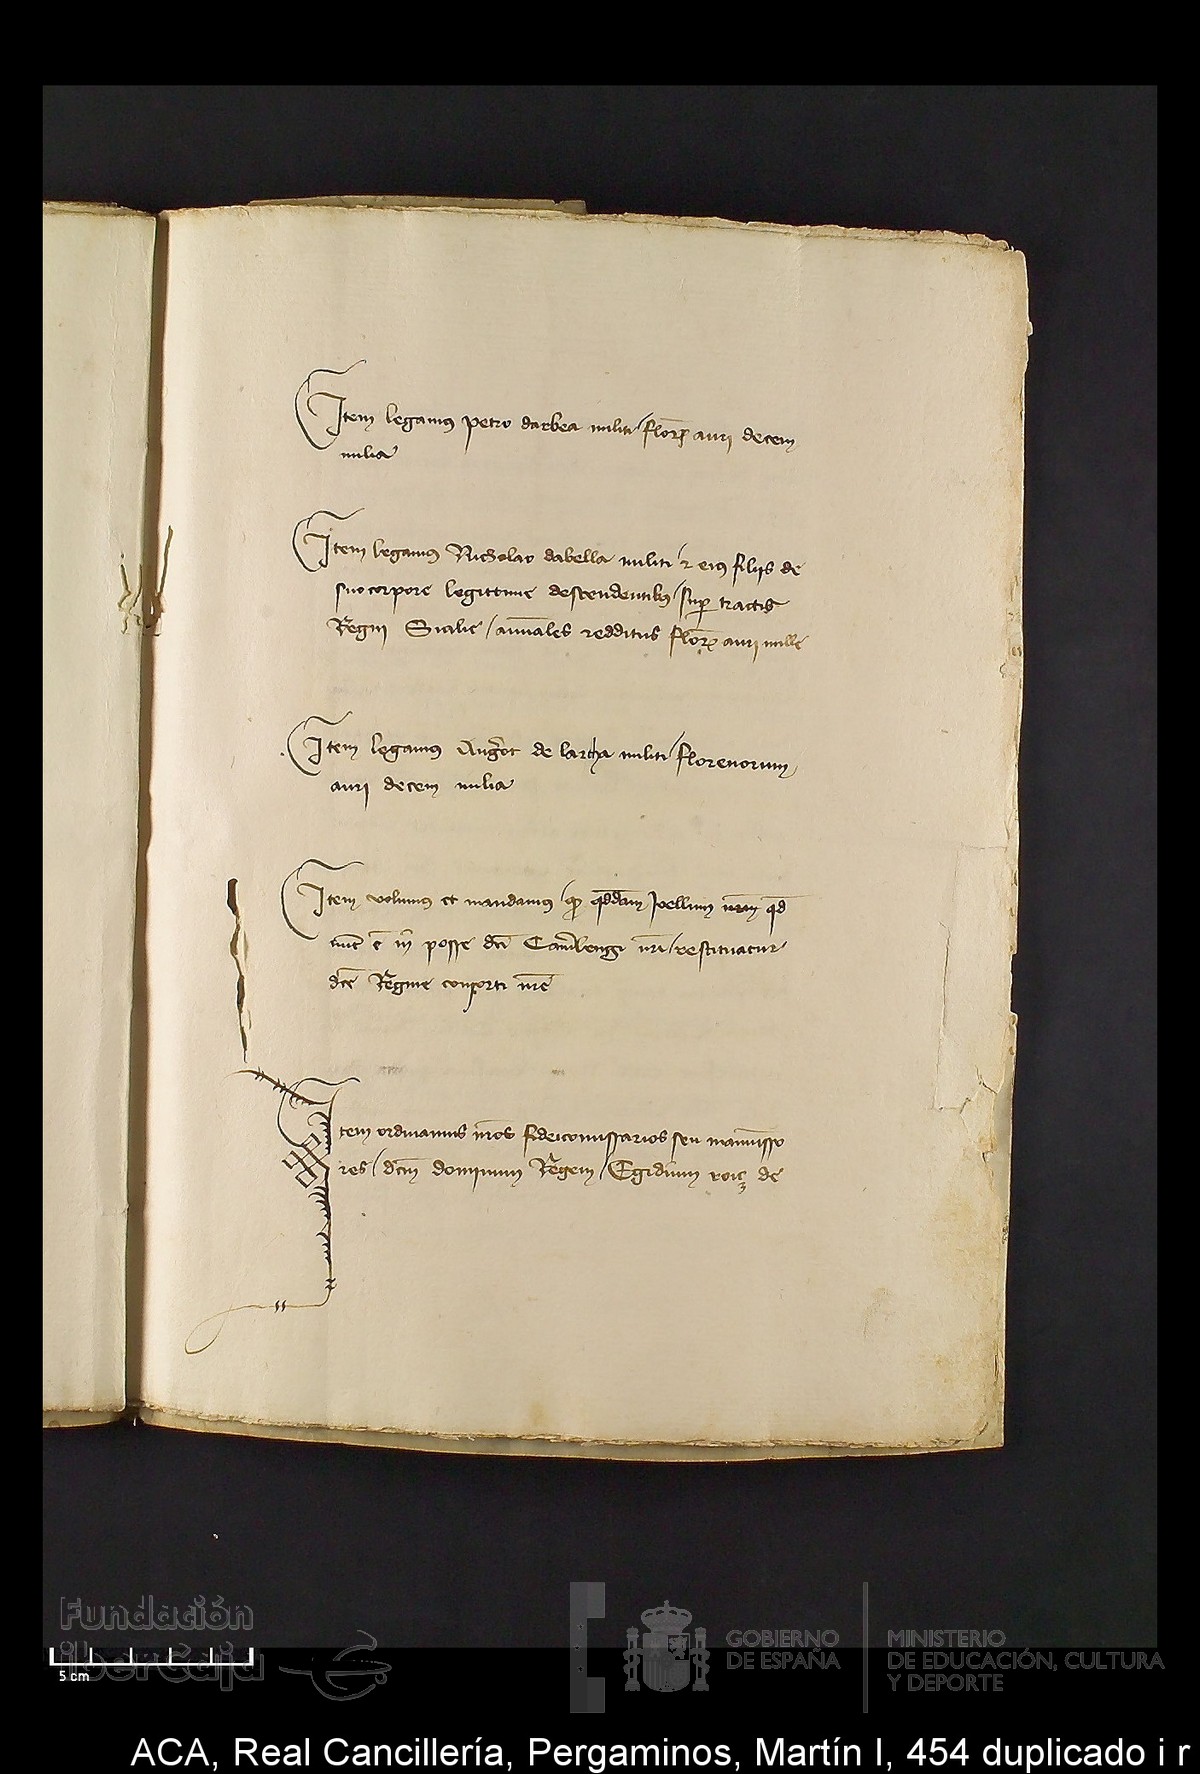 Item legamus Petro darbea militi / floreñ auri decem
milia
Item legamus Nicholao dabella militi / & eius filiis de
suo corpore legittime descendentibus / sup tractis
Regni Sicilie / annuales redditus floreñ auri mille
Item legamus de militi / florenorum
auri decem milia
Item volumus et mandamus / qd qddam Jocellum nrm qd
nunc e in posse dci Camlengi nri / restituatur
dce Regine consorti nre
Item ordinamus nros fideicomissarios seu manumisso
res / dcm dominum Regem / Egidium roiç de
Fundación
iberCaja
5 cm
GOBIERNO
DE ESPAÑA
MINISTERIO
DE EDUCACIÓN, CULTURA
Y DEPORTE
ACA, Real Cancillería, Pergaminos, Martín I, 454 duplicado i r